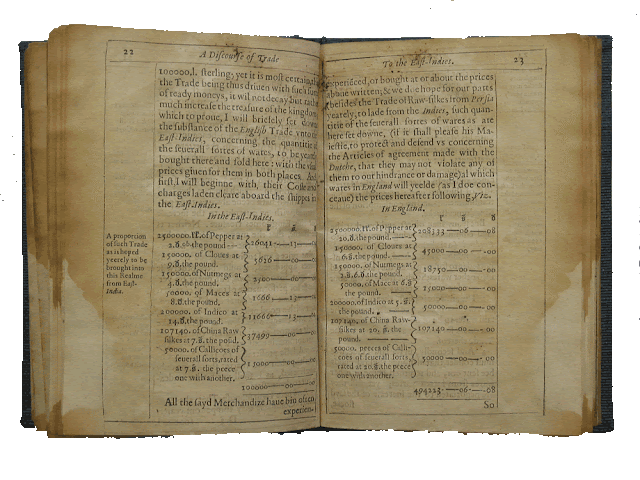 22
A Discourse of Trade
100000.l. sterling; yet it is most certain, that
the Trade being thus driven with such sum
of ready moneys, it wil not decay but rather
much increase the treasure of the kingdome
which to proue, I will briefely set down
the substance of the English Trade vnto the
East-Indies, concerning the quantitie of
the seuerall sortes of wares, to be yearely
bought there and sold here: with the vsuall
prices giuen for them in both places. And
first, I will beginne with, their Coste and
charges laden cleare aboard the shippes in
the East-Indies.
In the East-Indies.
A proportion
of such Trade
as is hoped
yeerely to be
brought into
this Realme
from East-
India.
2500000. of Pepper at
the pound.
150000. of Cloues at
9. the pound. 5626—00—00
150000. of Nutmegs at
4. the pound. 2500—00—
50000. of Maces at
8. the pound. 1666—13—
200000. of Indico at
14. the pound. 11666—13—
107140. of China Raw
silkes at 7. the poūd. 37499—00—
50000. of Callicoes of
seuerall sorts, rated
at 7. the peece
one with another. 15000—00—
100000
All the sayd Merchandize haue bin often
experien-
23
To the East-Indies.
experienced, or bought at or about the prices
aboue written; & we do hope for our parts
(besides the Trade of Raw-silkes from Persia
yearely, to lade from the Indies, such quan-
titie of the seuerall sortes of wares as are
here set downe, (if it shall please his Ma-
iestie, to protect and defend vs concerning
the Articles of agreement made with the
Dutche, that they may not violate any of
them to our hindrance or damage) al which
wares in England will yeelde (as I doe con-
ceaue) the prices hereafter following, viz.
In England.
2500000. of Pepper at
20. the pound. 208333—06—08
150000. of Cloues at
6. the pound. 45000—00—00
150000. of Nutmegs at
the pound. 18750—00—00
50000. of Maces at 6.
the pound. 15000—00—00
200000. of Indico at 5.
the pound. 50000—00—00
107140. of China Raw-
silkes at 20. the
pound. 107140—00—00
50000. peeces of Calli-
coes of seuerall sorts,
rated at 20. the peece
one with another. 50000—00—00
494223—06—08
So